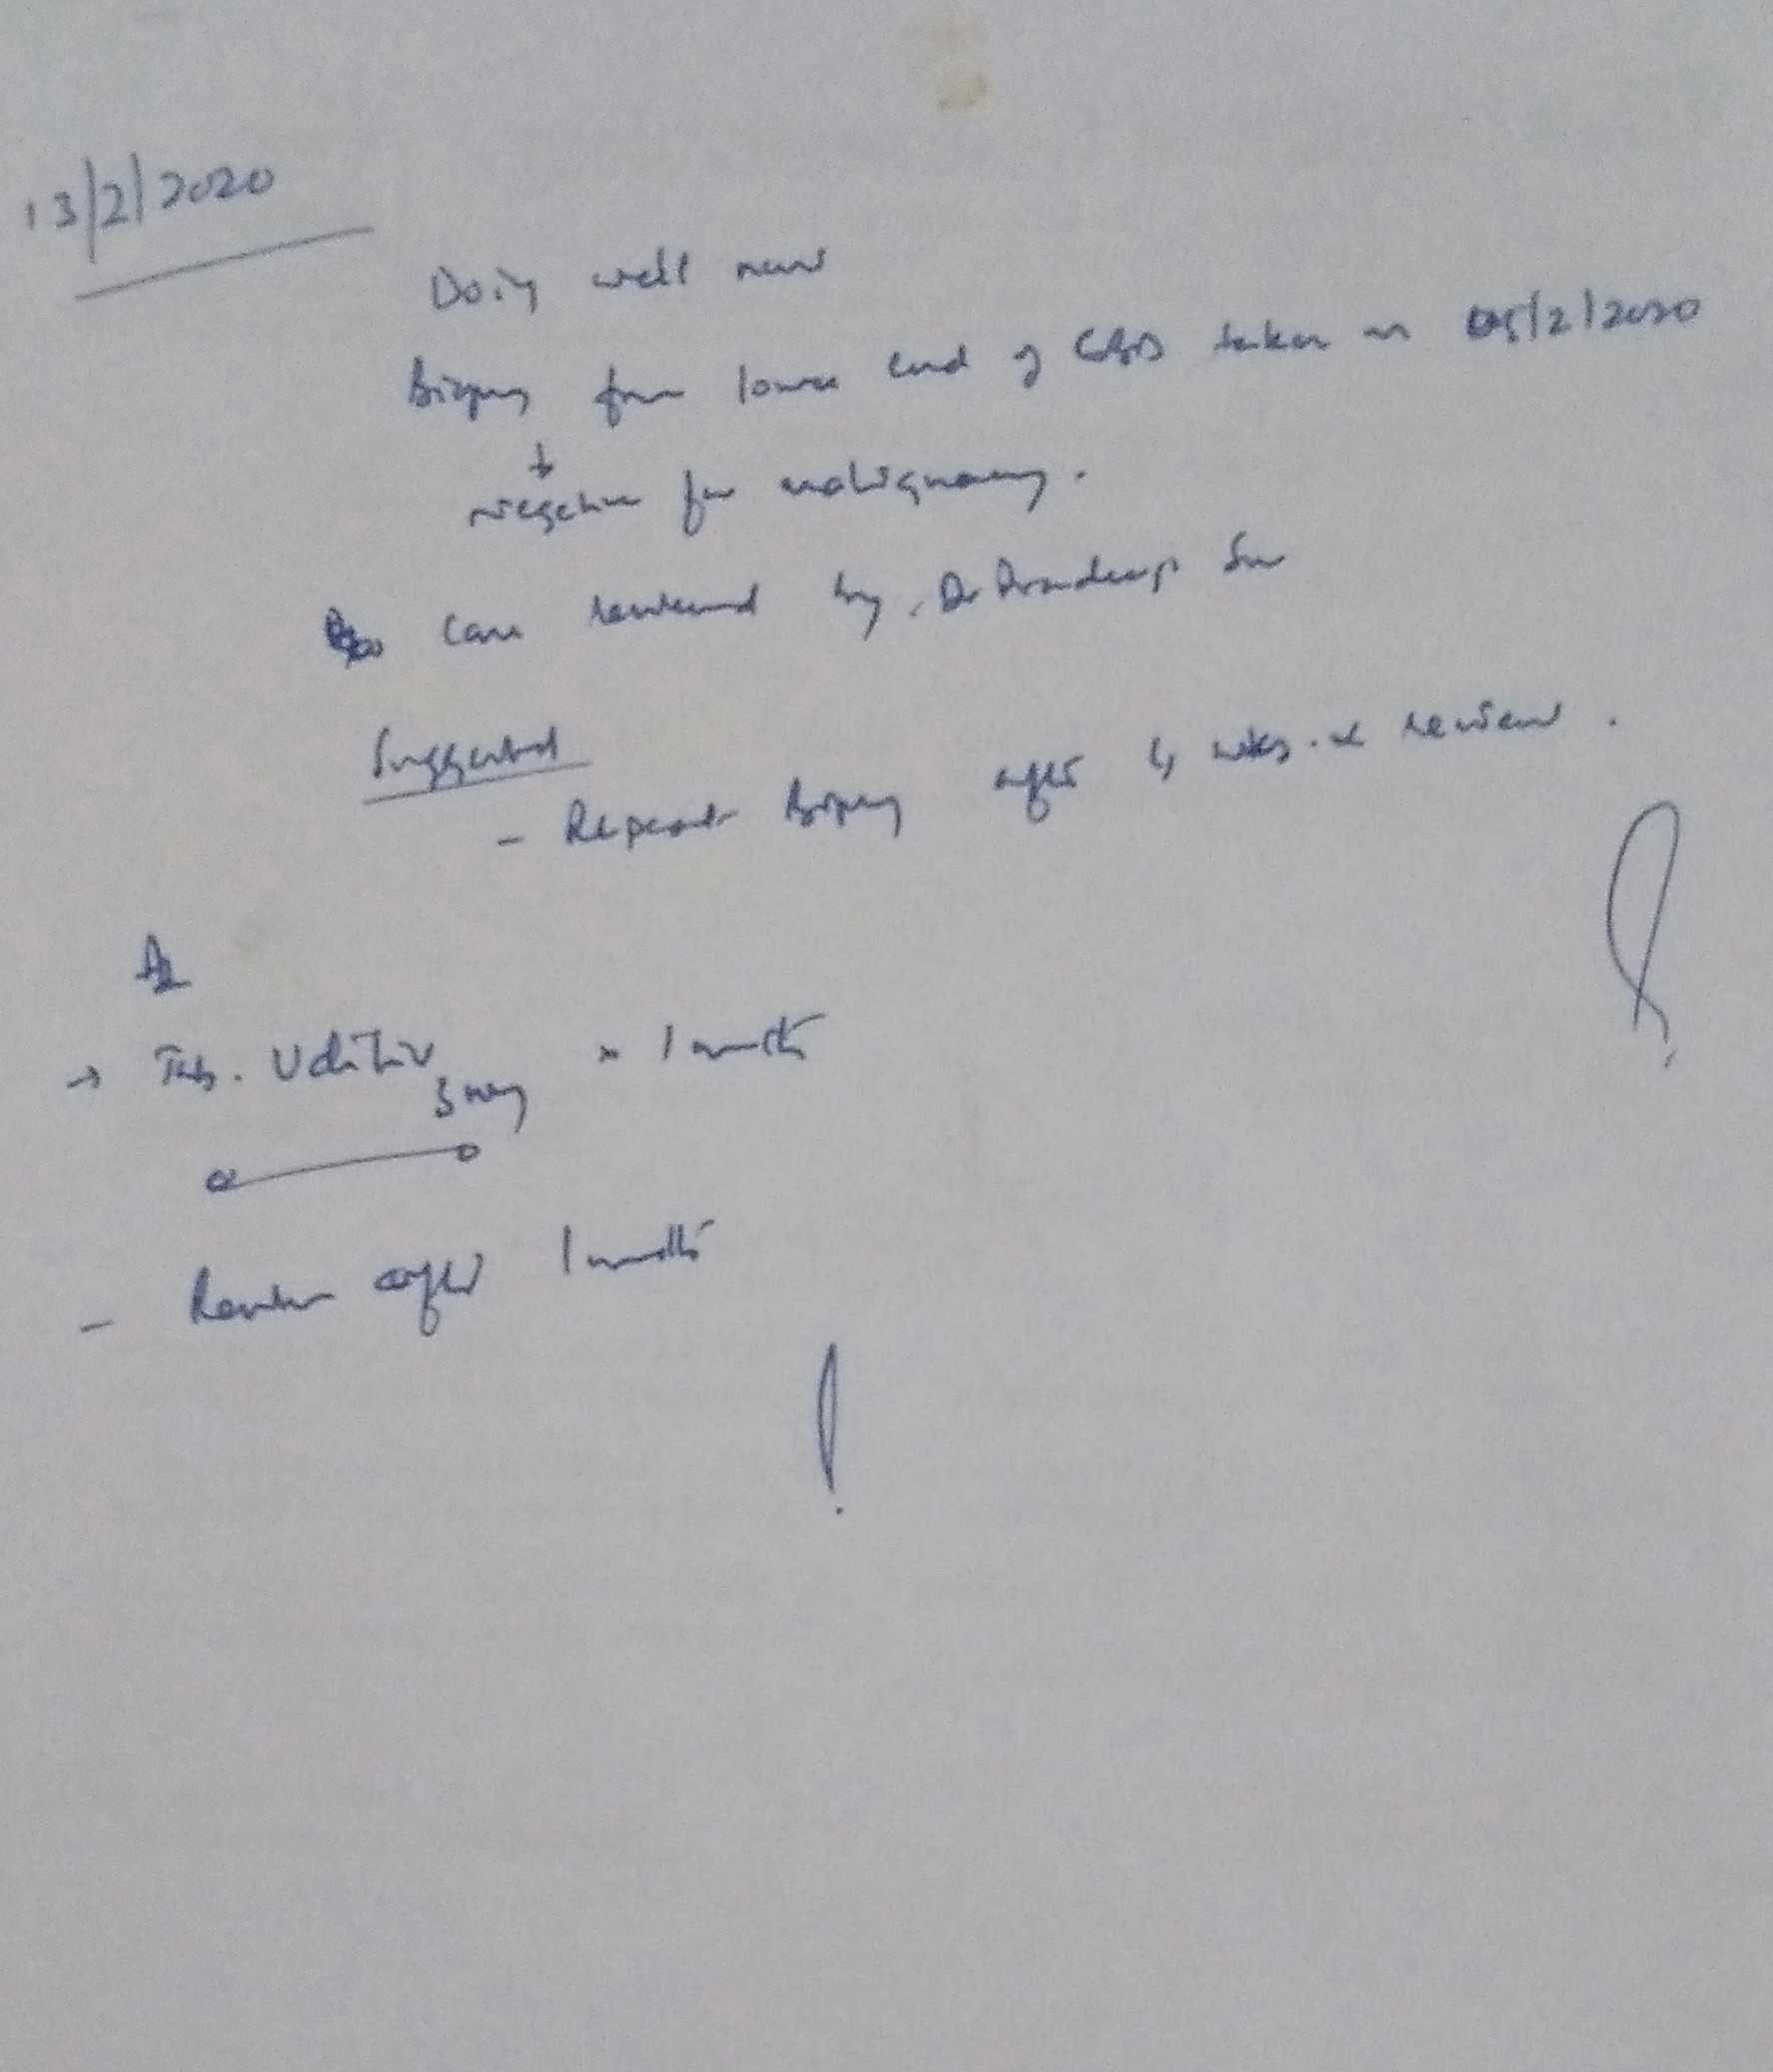 13/2/2020
Doing well now
Biopsy from lower end of CBD taken on 05/2/2020
↓
Negative for malignancy.
Case reviewed by Dr Pradeep Sir
Suggested
- Repeat Biopsy after 4 wks. & review.
Rx
→ Tab. Udiliv × 1 month
- Review after 1 month